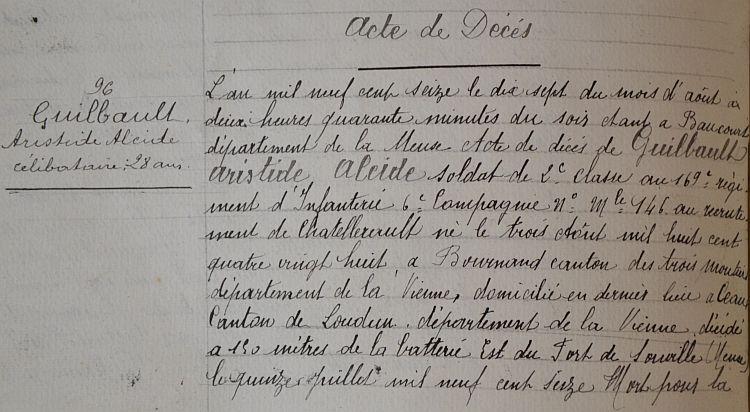 Acte de Décés
96
Guilbault,
Aristide Alcide
célibataire; 28 ans.
L'an mil neuf cent seize le dix sept du mois d'août à
deux heures quarante minutes du soir étant a Bancourt
département de la Meuse Acte de décés de Guilbault
Aristide Alcide soldat de 2e classe au 169e régi
ment d'Infanterie 6e Compagnie No Mle 146 au recrute
ment de Chatellereault né le trois Août mil huit cent
quatre vingt huit, a Bournand canton des trois moutiers
département de la Vienne, domicilié en dernier lieu a Ceaux
Canton de Loudun, département de la Vienne, décédé
a 150 mètres de la batterie Est du Fort de Souville (Meuse)
le quinze Juillet mil neuf cent seize Mort pour la